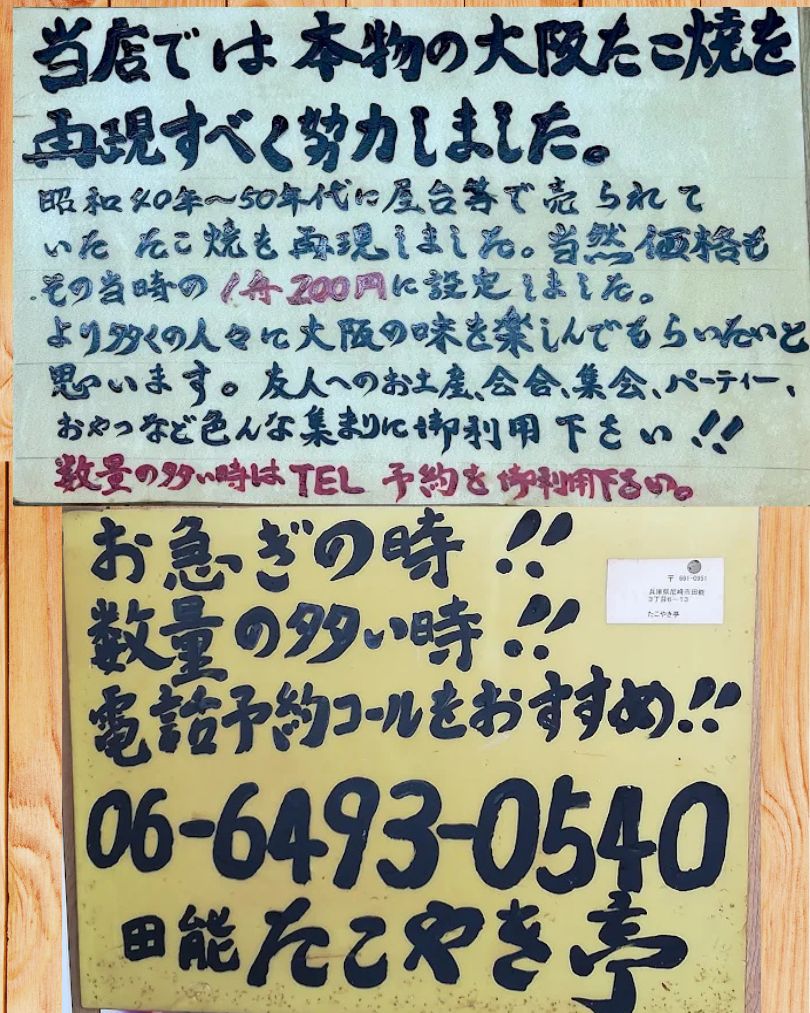 当店では本物の大阪たこ焼を
再現すべく努力しました。
昭和40年〜50年代に屋台等で売られて
いたたこ焼を再現しました。当然価格も
その当時の1舟200円に設定しました。
より多くの人々に大阪の味を楽しんでもらいたいと
思います。友人へのお土産、会合、集会、パーティー、
おやつなど色んな集まりに御利用下さい!!
数量の多い時はTEL予約を御利用下さい。
お急ぎの時!!
〒661-0951
兵庫県尼崎市田能
3丁目6-13
たこやき亭
数量の多い時!!
電話予約コールをおすすめ!!
06-6493-0540
田能たこやき亭